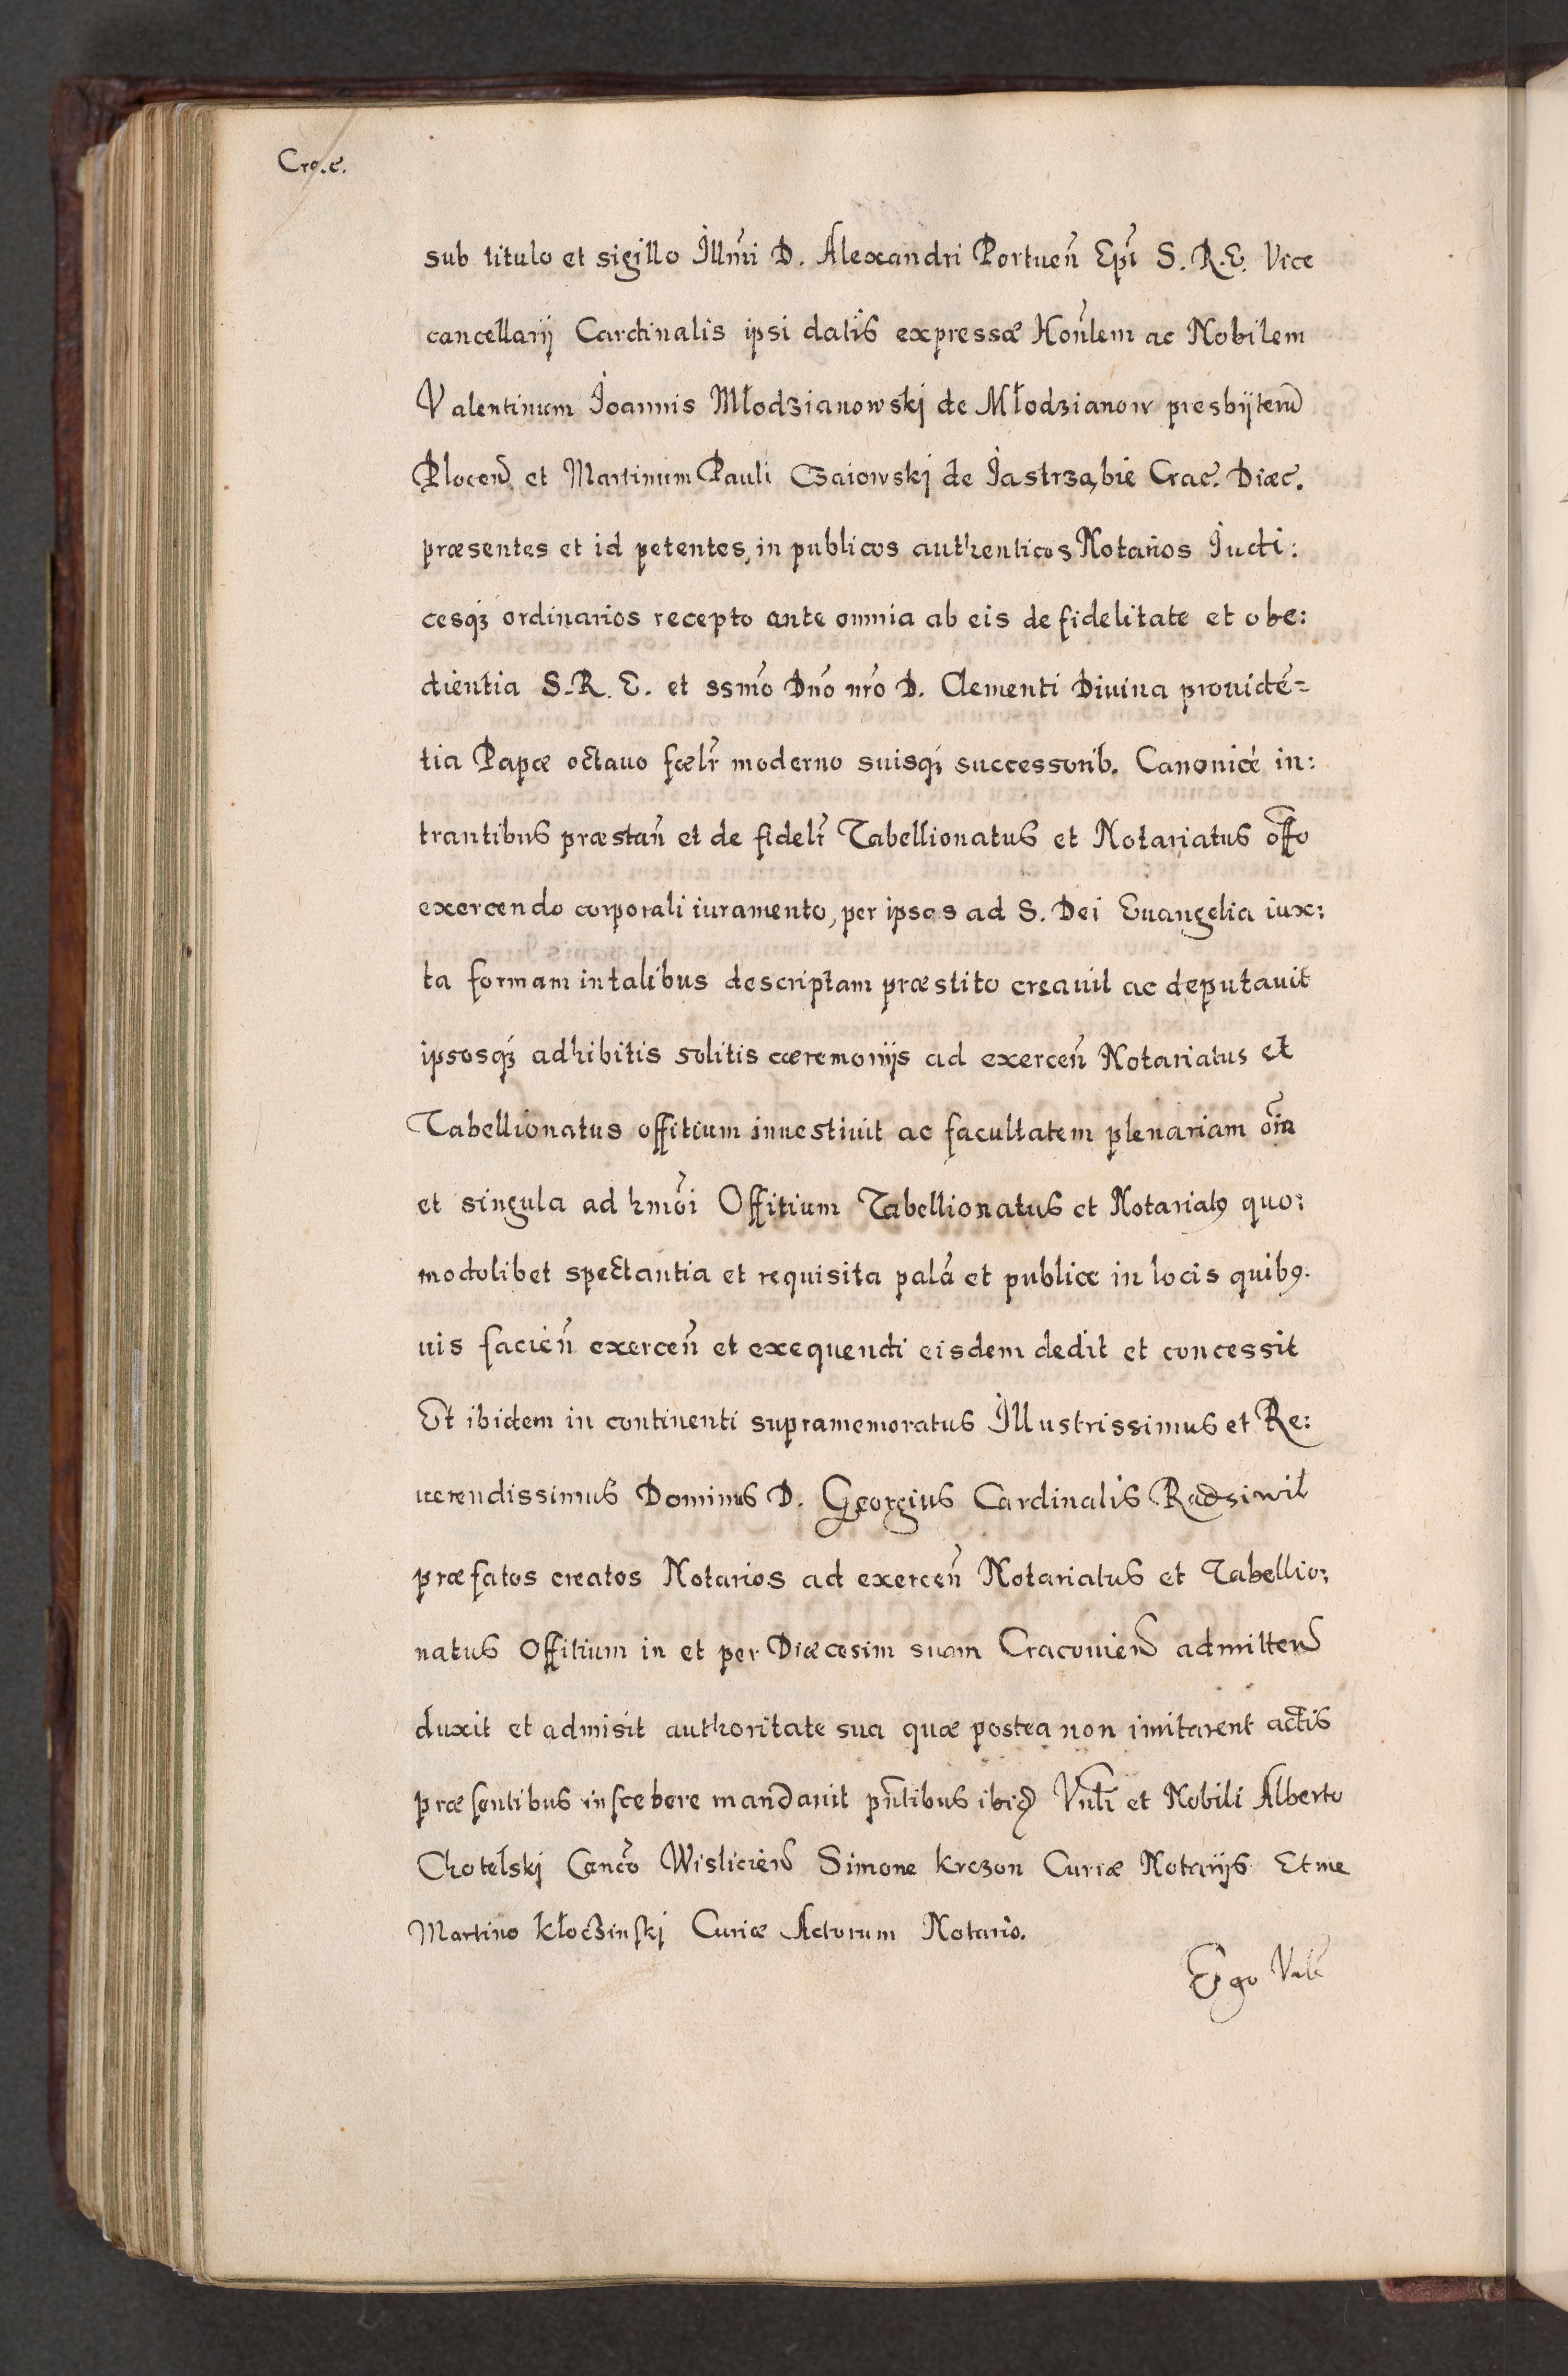 Cra.e.
sub titulo et sigillo Illm̃i D. Alexandri Portueñ Epĩ S.R.E. Vice
cancellarij Cardinalis ipsi datis expressæ Hoñlem ac Nobilem
Valentinum Joannis Młodzianowskj de Młodzianow presbijterũ
Plocen̄ et Martinum Pauli Czaiowskj de Jastrząbie Crac. Diæc.
præsentes et id petentes, in publicos authenticos Notarios Judi:
cesqꝫ ordinarios recepto ante omnia ab eis de fidelitate et obe:
dientia S.R.E. et ssm̃o Dño nr̃o D. Clementi Diuina prouidẽ=
tia Papæ octauo fœlr̃ moderno suisqꝫ successorib. Canonicè in:
trantibus præstañ et de fidelr̃ Tabellionatus et Notariatus offõ
exercendo corporali iuramento, per ipsos ad S. Dei Euangelia iux:
ta formam in talibus descriptam præstito creauit ac deputauit
ipsosqꝫ adhibitis solitis cæremonijs ad exerceñ Notariatus et
Tabellionatus offitium inuestiuit ac facultatem plenariam om̃ia
et singula ad hmõi Offitium Tabellionatus et Notariatꝰ quo:
modolibet spectantia et requisita palã et publice in locis quibꝰ.
uis facieñ exerceñ et exequendi eisdem dedit et concessit
Et ibidem in continenti supramemoratus Illustrissimus et Re:
uerendissimus Dominus D. Georgius Cardinalis Radziwil
præfatos creatos Notarios ad exerceñ Notariatus et Tabellio:
natus Offitium in et per Diæcesim suam Cracouien̄ admitten̄
duxit et admisit authoritate sua quæ postea non imitarent actis
præsentibus inscebere mandauit pñtibus ibiđ Vnl̃i et Nobili Alberto
Chotelskj Canc̃o Wislicien̄ Simone Krczon Curiæ Notarijs Et me
Martino Kłoczinskj Curiæ Actorum Notario.
Ego Val̃